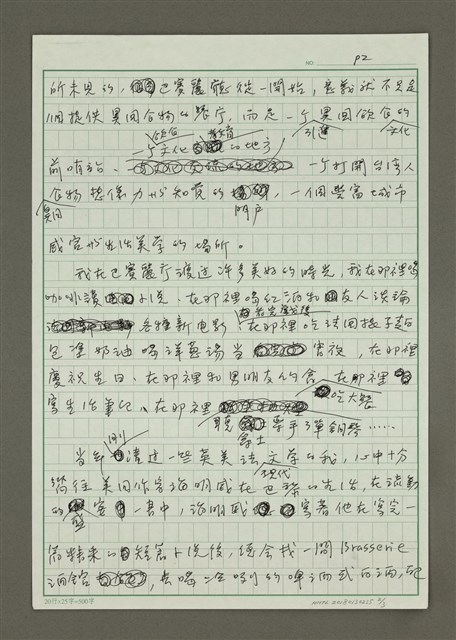 NO. P2
所未見的，巴賽麗廳從一開始，意義就不只是
一個提供異國食物的餐廳，而是一个異國飲食的
飲食 教育 引進 文化
一个文化 的地方
前哨站、 一个打開台灣人
食物想像力與知覺的 ，一個豐富城市
異國 門户
感官與生活美學的場所。
我在巴賽麗廳渡過許多美好的時光，我在那裡喝
咖啡讀 小說、在那裡喝紅酒和 友人談論
各種新电影、在那裡吃法國棍子麵
包塗奶油喝洋蔥湯當 宵夜，在那裡
慶祝生日、在那裡和男朋友約會、在那裡
吃大餐
寫生活筆記、在那裡
聽 爵士 樂手彈鋼琴……
當年 剛 讀过一些英美法文学的我，心中十分
現代
嚮往美國作家海明威在巴黎的生活，在流動
的 盛 宴 一書中，海明威 寫著他在寫完一
篇精采的短篇小说後，總会找一間Brasserie
酒館 ，去喝一些吸引的啤酒或白酒，配
20行×25字=500字